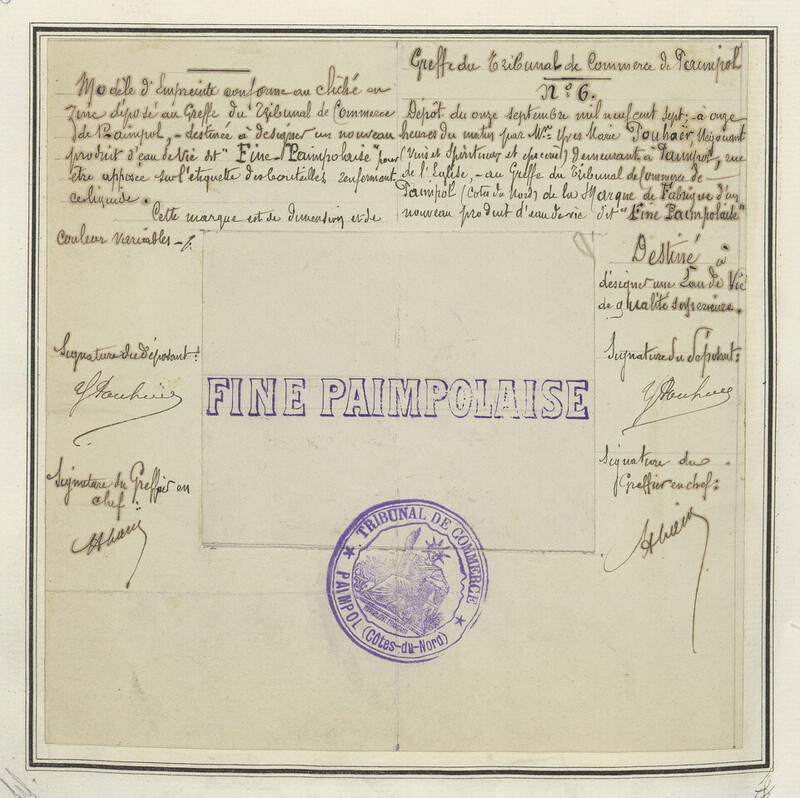 Modèle d'Empreinte conforme au cliché en
Zinc déposé au Greffe du Tribunal de Commerce
de Paimpol, - destinée à désigner un nouveau
produit d'eau de Vie dit "Fine-Paimpolaise" pour
être apposée sur l'étiquette des bouteilles renfermant
ce liquide.
Cette marque est de dimension et de
couleur variables
Signature du déposant:
Signature du Greffier en
chef:
Greffe du Tribunal de Commerce de Paimpol
No 6.
Dépôt du onze septembre mil neuf cent sept; à onze
heures du matin par Mr. Yves Marie Pouhaër, Négociant
(Vins et Spiritueux et épicerie) demeurant à Paimpol, rue
de l'Eglise, - au Greffe du Tribunal de Commerce de
Paimpol (Cotes du Nord) de la Marque de Fabrique d'un
nouveau produit d'eau de vie dit "Fine Paimpolaise"
Destiné à
désigner une Eau de Vie
de qualité supérieure.
Signature du déposant:
Signature du
Greffier en chef:
FINE PAIMPOLAISE
TRIBUNAL DE COMMERCE
PAIMPOL (Côtes-du-Nord)